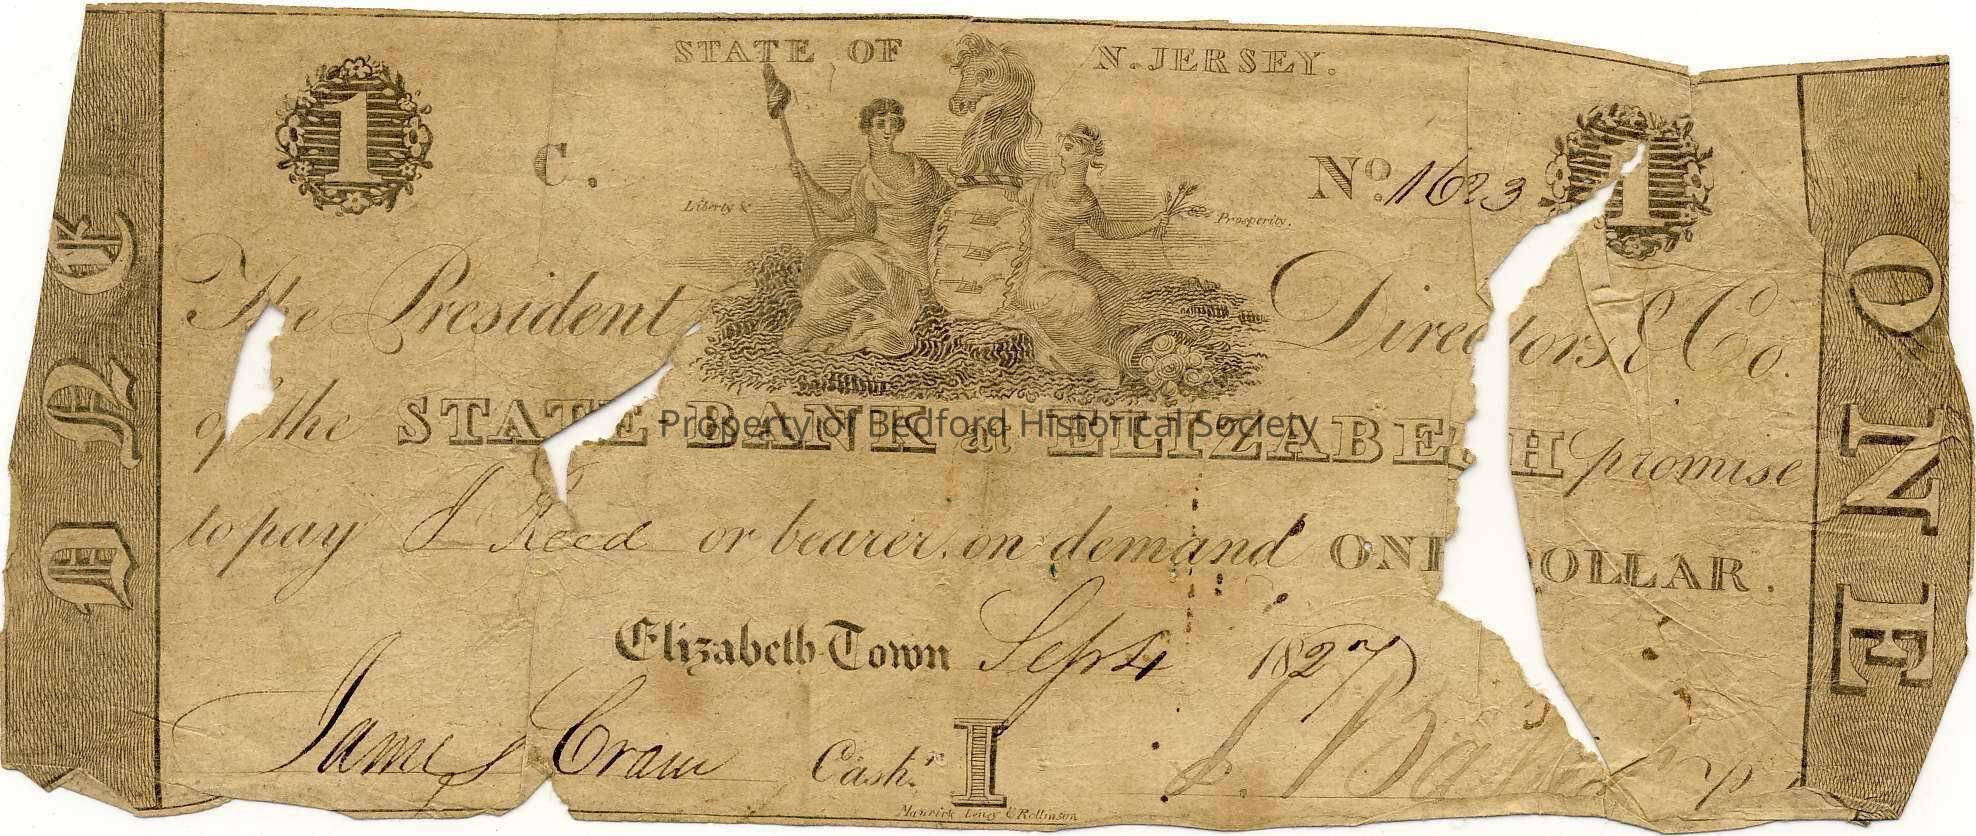 STATE OF N. JERSEY.
1
C.
No. 1623
1
Liberty &
Prosperity.
The President Directors & Co.
of the STATE BANK at ELIZABETH promise
Property of Bedford Historical Society
to pay J Reed or bearer, on demand ONE DOLLAR.
Elizabeth Town Sept 4 1827
James Crane Cashr.
I
Maverick Leney & Rollinson
ONE
ONE